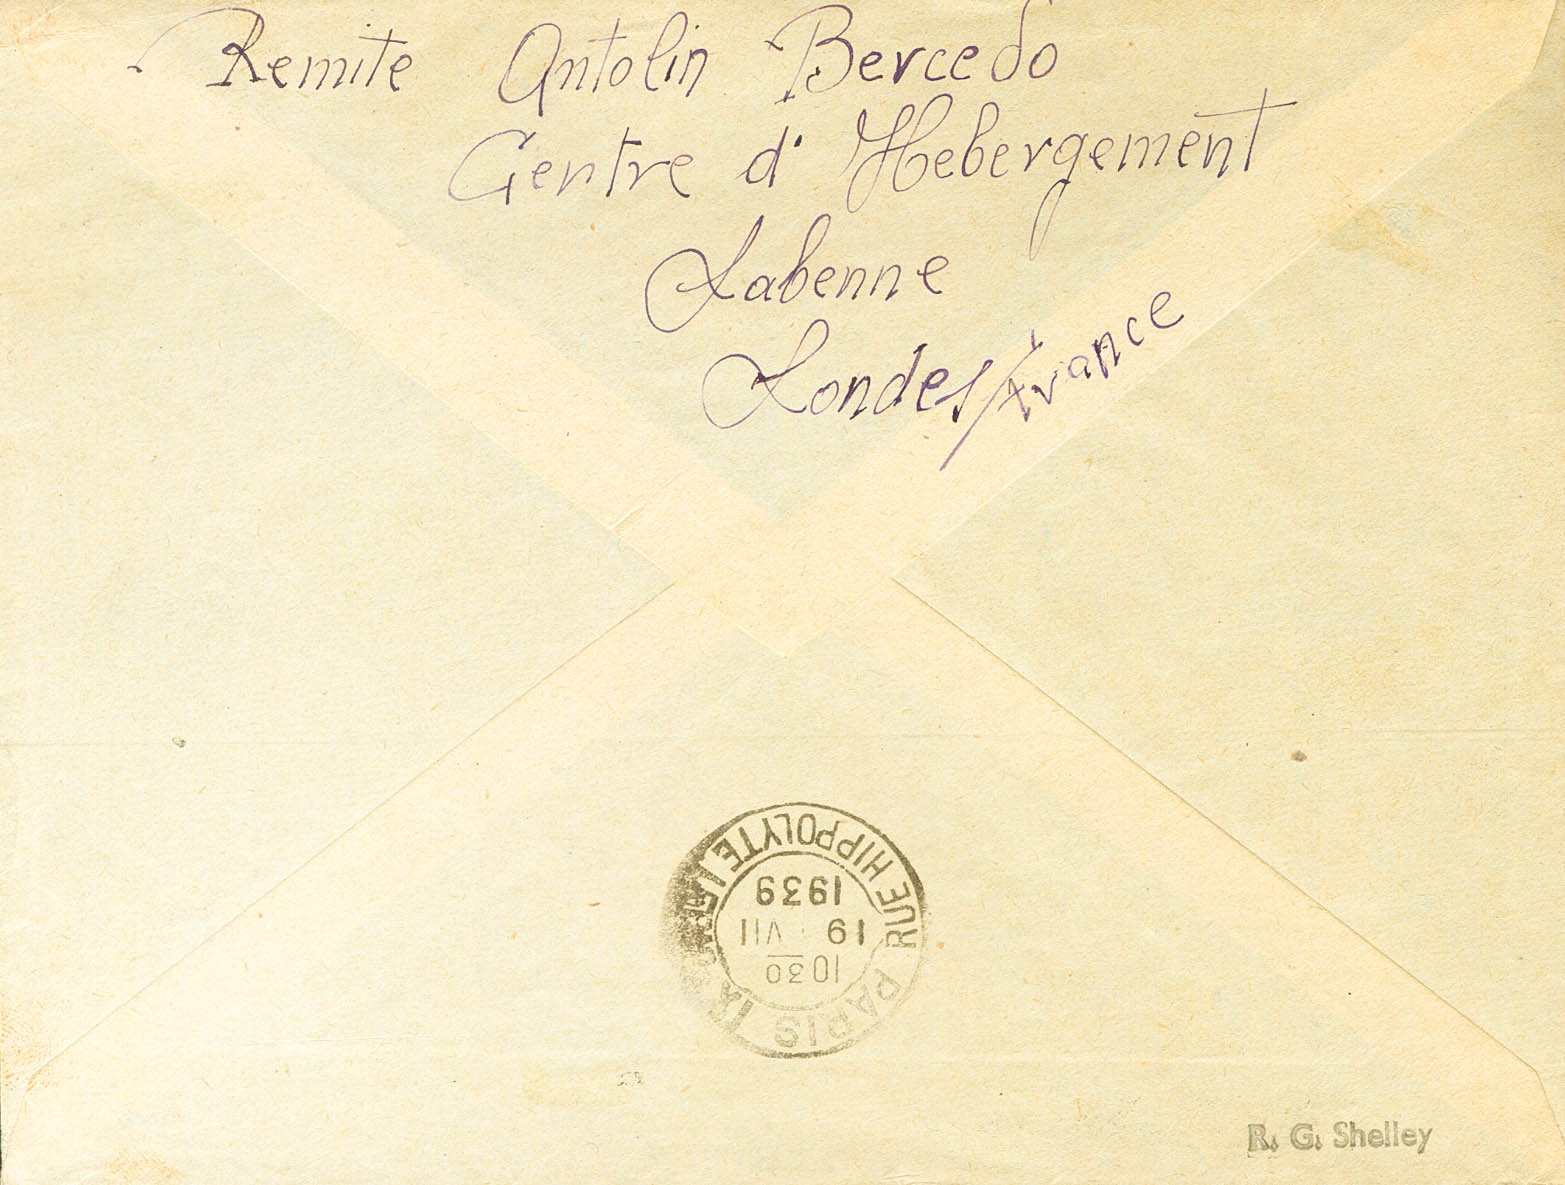 Remite Antolin Bercedo
Centre d' Hebergement
Labenne
Londes/france
RUE HIPPOLYTE
PARIS IX
1030
19 VII
1939
R. G. Shelley